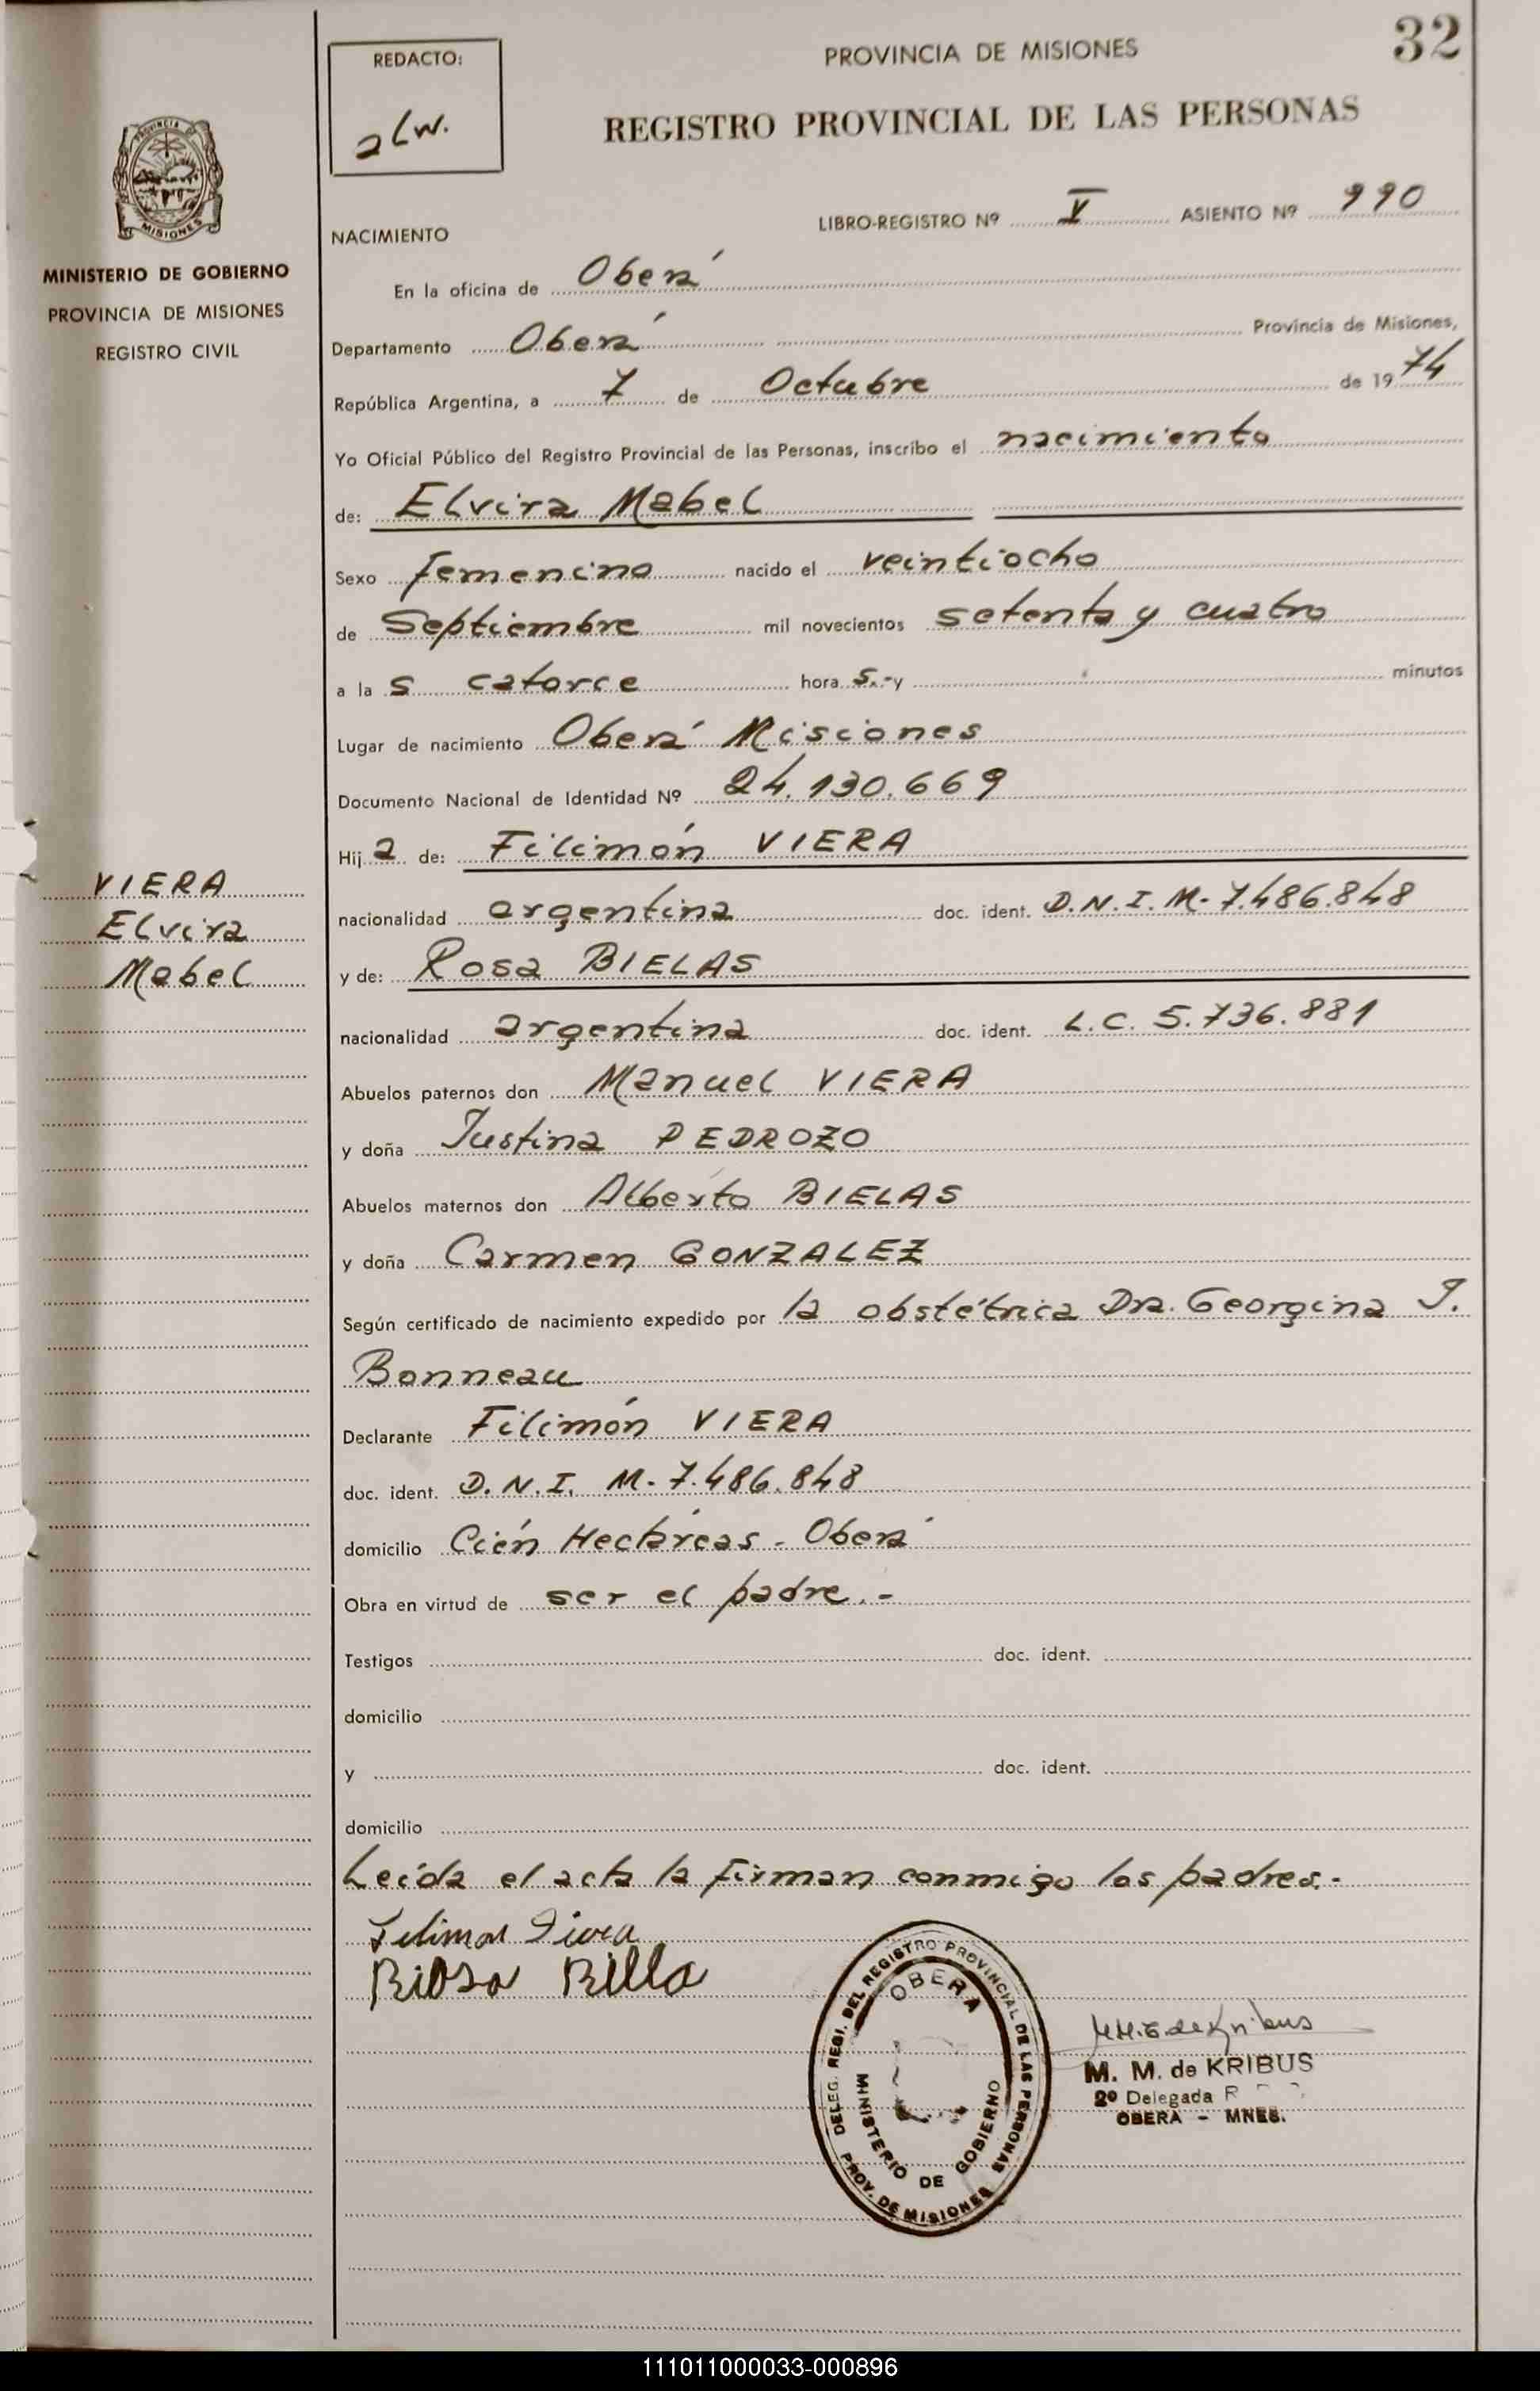 32
REDACTO:
PROVINCIA DE MISIONES
REGISTRO PROVINCIAL DE LAS PERSONAS
PROVINCIA
MISIONES
MINISTERIO DE GOBIERNO
PROVINCIA DE MISIONES
REGISTRO CIVIL
LIBRO-REGISTRO Nº V ASIENTO Nº 990
NACIMIENTO
En la oficina de Oberá
Departamento Oberá Provincia de Misiones,
República Argentina, a 7 de Octubre de 1974
Yo Oficial Público del Registro Provincial de las Personas, inscribo el nacimiento
de: Elvira Mabel
Sexo femenino nacido el veintiocho
de Septiembre mil novecientos setenta y cuatro
a la s catorce hora s.- y minutos
Lugar de nacimiento Oberá Misiones
Documento Nacional de Identidad Nº 24.130.669
Hij a de: Filimón VIERA
VIERA
Elvira
Mabel
nacionalidad argentina doc. ident. D.N.I. M- 7.486.848
y de: Rosa BIELAS
nacionalidad argentina doc. ident. L.C. 5.736.881
Abuelos paternos don Manuel VIERA
y doña Justina PEDROZO
Abuelos maternos don Alberto BIELAS
y doña Carmen GONZALEZ
Según certificado de nacimiento expedido por la obstétrica Dra. Georgina J.
Bonneau
Declarante Filimón VIERA
doc. ident. D.N.I. M- 7.486.848
domicilio Cién Hectáreas - Oberá
Obra en virtud de ser el padre.-
Testigos doc. ident.
domicilio
y doc. ident.
domicilio
Leída el acta la firman conmigo los padres.-
DELEG. REGI. DEL REGISTRO PROVINCIAL DE LAS PERSONAS
OBERA
MINISTERIO DE GOBIERNO
PROV. DE MISIONES
M. M. de KRIBUS
2º Delegada
OBERA - MNES.
111011000033-000896